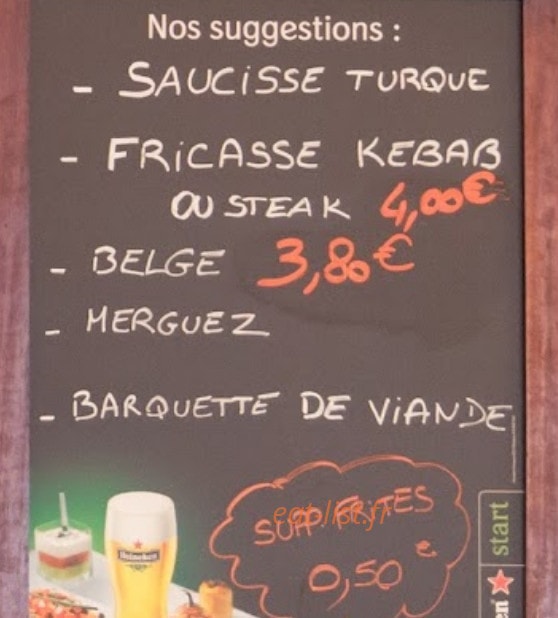 Nos suggestions :
- SAUCiSSE TURQUE
- FRiCASSE KEBAB
OU STEAK 4,00€
- BELGE 3,80€
- MERGUEZ
- BARQUETTE DE ViANDE
SUP FRITES
eatlist.fr
0,50 €
Heineken
start